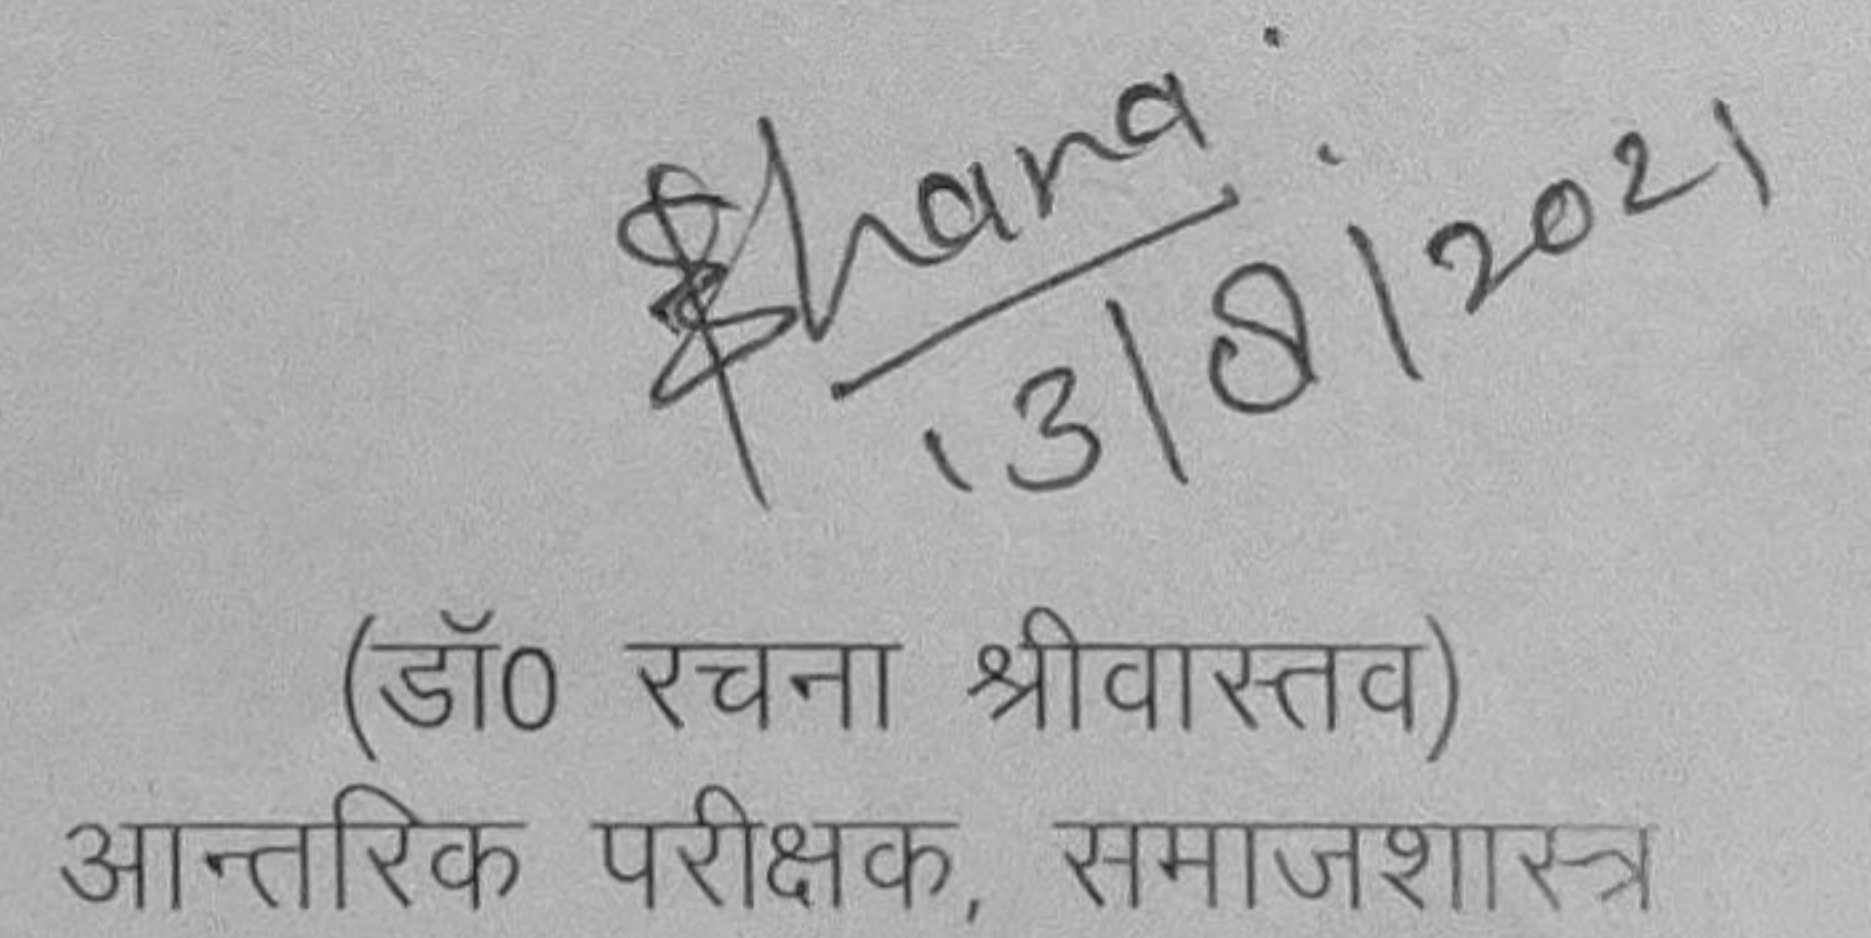 13/8/2021
(डॉ0 रचना श्रीवास्तव)
आन्तरिक परीक्षक, समाजशास्त्र